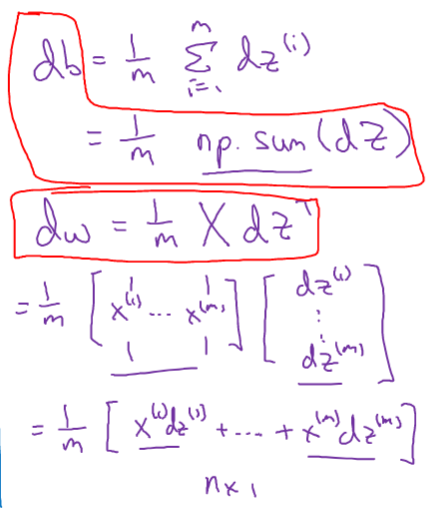 db = 1/m Σ_{i=1}^{m} dz^{(i)}
= 1/m np.sum(dZ)
dw = 1/m X dz^T
= 1/m [x^{(1)} ... x^{(m)}] [dz^{(1)} ⋮ dz^{(m)}]
= 1/m [x^{(1)}dz^{(1)} + ... + x^{(m)}dz^{(m)}]
n x 1